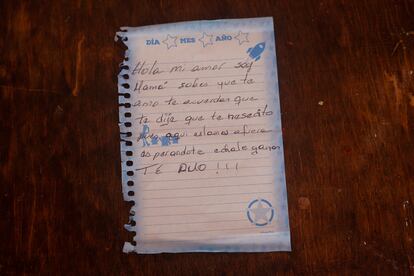 DÍA MES AÑO
Hola mi amor soy
Mamá sabes que te
amo te acuerdas que
te dije que te nesesito
pues aqui estamos afuera
esperandote echale ganas
TE AMO !!!